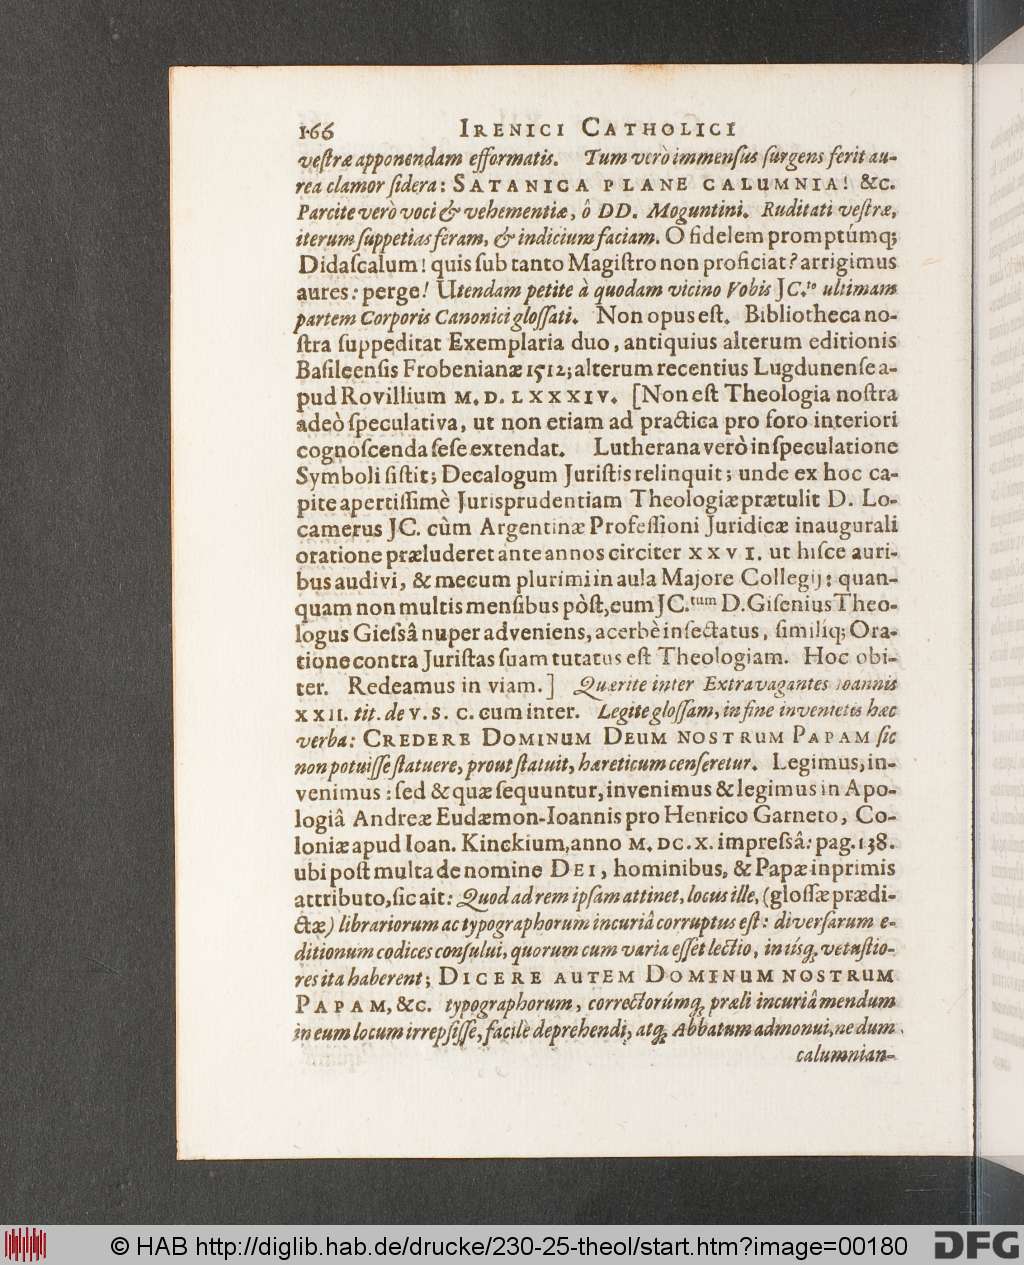 166 IRENICI CATHOLICI
veſtræ apponendam efformatis. Tum verò immenſus ſurgens ferit au-
rea clamor ſidera: SATANICA PLANE CALUMNIA! &c.
Parcite verò voci & vehementiæ, ô DD. Moguntini. Ruditati veſtræ,
iterum ſuppetias feram, & indicium faciam. O fidelem promptúmq;
Didaſcalum! quis ſub tanto Magiſtro non proficiat? arrigimus
aures: perge! Utendam petite à quodam vicino Vobis JC.to ultimam
partem Corporis Canonici gloſſati. Non opus eſt. Bibliotheca no-
ſtra ſuppeditat Exemplaria duo, antiquius alterum editionis
Baſileenſis Frobenianæ 1512; alterum recentius Lugdunenſe a-
pud Rovillium M.D.LXXXIV. [Non eſt Theologia noſtra
adeò ſpeculativa, ut non etiam ad practica pro foro interiori
cognoſcenda ſeſe extendat. Lutherana verò in ſpeculatione
Symboli ſiſtit; Decalogum Juriſtis relinquit; unde ex hoc ca-
pite apertiſſimè Jurisprudentiam Theologiæ prætulit D. Lo-
camerus JC. cùm Argentinæ Profeſſioni Juridicæ inaugurali
oratione præluderet ante annos circiter XXVI. ut hiſce auri-
bus audivi, & mecum plurimi in aula Majore Collegij: quan-
quam non multis menſibus pòſt, eum JC.tum D. Giſenius Theo-
logus Gieſsâ nuper adveniens, acerbè inſectatus, ſimiliq; Ora-
tione contra Juriſtas ſuam tutatus eſt Theologiam. Hoc obi-
ter. Redeamus in viam.] Quærite inter Extravagantes Ioannis
XXII. tit. de V. S. C. cum inter. Legite gloſſam, in fine invenietis hæc
verba: CREDERE DOMINUM DEUM NOSTRUM PAPAM ſic
non potuiſſe ſtatuere, prout ſtatuit, hæreticum cenſeretur. Legimus, in-
venimus: ſed & quæ ſequuntur, invenimus & legimus in Apo-
logiâ Andreæ Eudæmon-Ioannis pro Henrico Garneto, Co-
loniæ apud Ioan. Kinckium, anno M.DC.X. impreſsâ: pag. 138.
ubi poſt multa de nomine DEI, hominibus, & Papæ inprimis
attributo, ſic ait: Quod ad rem ipſam attinet, locus ille, (gloſſæ prædi-
ctæ) librariorum ac typographorum incuriâ corruptus eſt: diverſarum e-
ditionum codices conſului, quorum cum varia eſſet lectio, in iisq; vetuſtio-
res ita haberent; DICERE AUTEM DOMINUM NOSTRUM
PAPAM, &c. typographorum, correctorúmq; præli incuriâ mendum
in eum locum irrepſiſſe, facilè deprehendi, atq; Abbatum admonui, ne dum
calumnian-
© HAB http://diglib.hab.de/drucke/230-25-theol/start.htm?image=00180
DFG